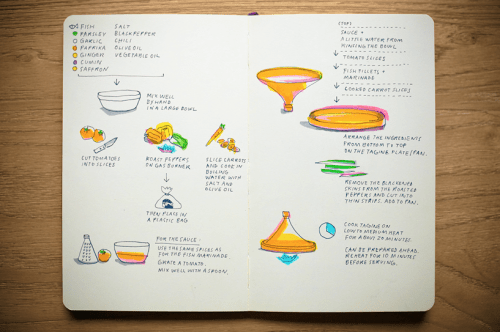 FISH SALT
PARSLEY BLACK PEPPER
GARLIC CHILI
PAPRIKA OLIVE OIL
GINGER VEGETABLE OIL
CUMIN
SAFFRON
MIX WELL
BY HAND
IN A LARGE BOWL
CUT TOMATOES
INTO SLICES
ROAST PEPPERS
ON GAS BURNER
SLICE CARROTS
AND COOK IN
BOILING
WATER WITH
SALT AND
OLIVE OIL
THEN PLACE IN
A PLASTIC BAG
FOR THE SAUCE:
USE THE SAME SPICES AS
FOR THE FISH MARINADE
GRATE A TOMATO.
MIX WELL WITH A SPOON.
STEPS
SAUCE +
A LITTLE WATER FROM
RINSING THE BOWL
TOMATO SLICES
FISH FILLETS +
MARINADE
COOKED CARROT SLICES
ARRANGE THE INGREDIENTS
FROM BOTTOM TO TOP
ON THE TAGINE PLATE/PAN.
REMOVE THE BLACKENED
SKINS FROM THE ROASTED
PEPPERS AND CUT INTO
THIN STRIPS. ADD TO PAN.
COOK TAGINE ON
LOW TO MEDIUM HEAT
FOR ABOUT 20 MINUTES.
CAN BE PREPARED AHEAD.
REHEAT FOR 10 MINUTES
BEFORE SERVING.